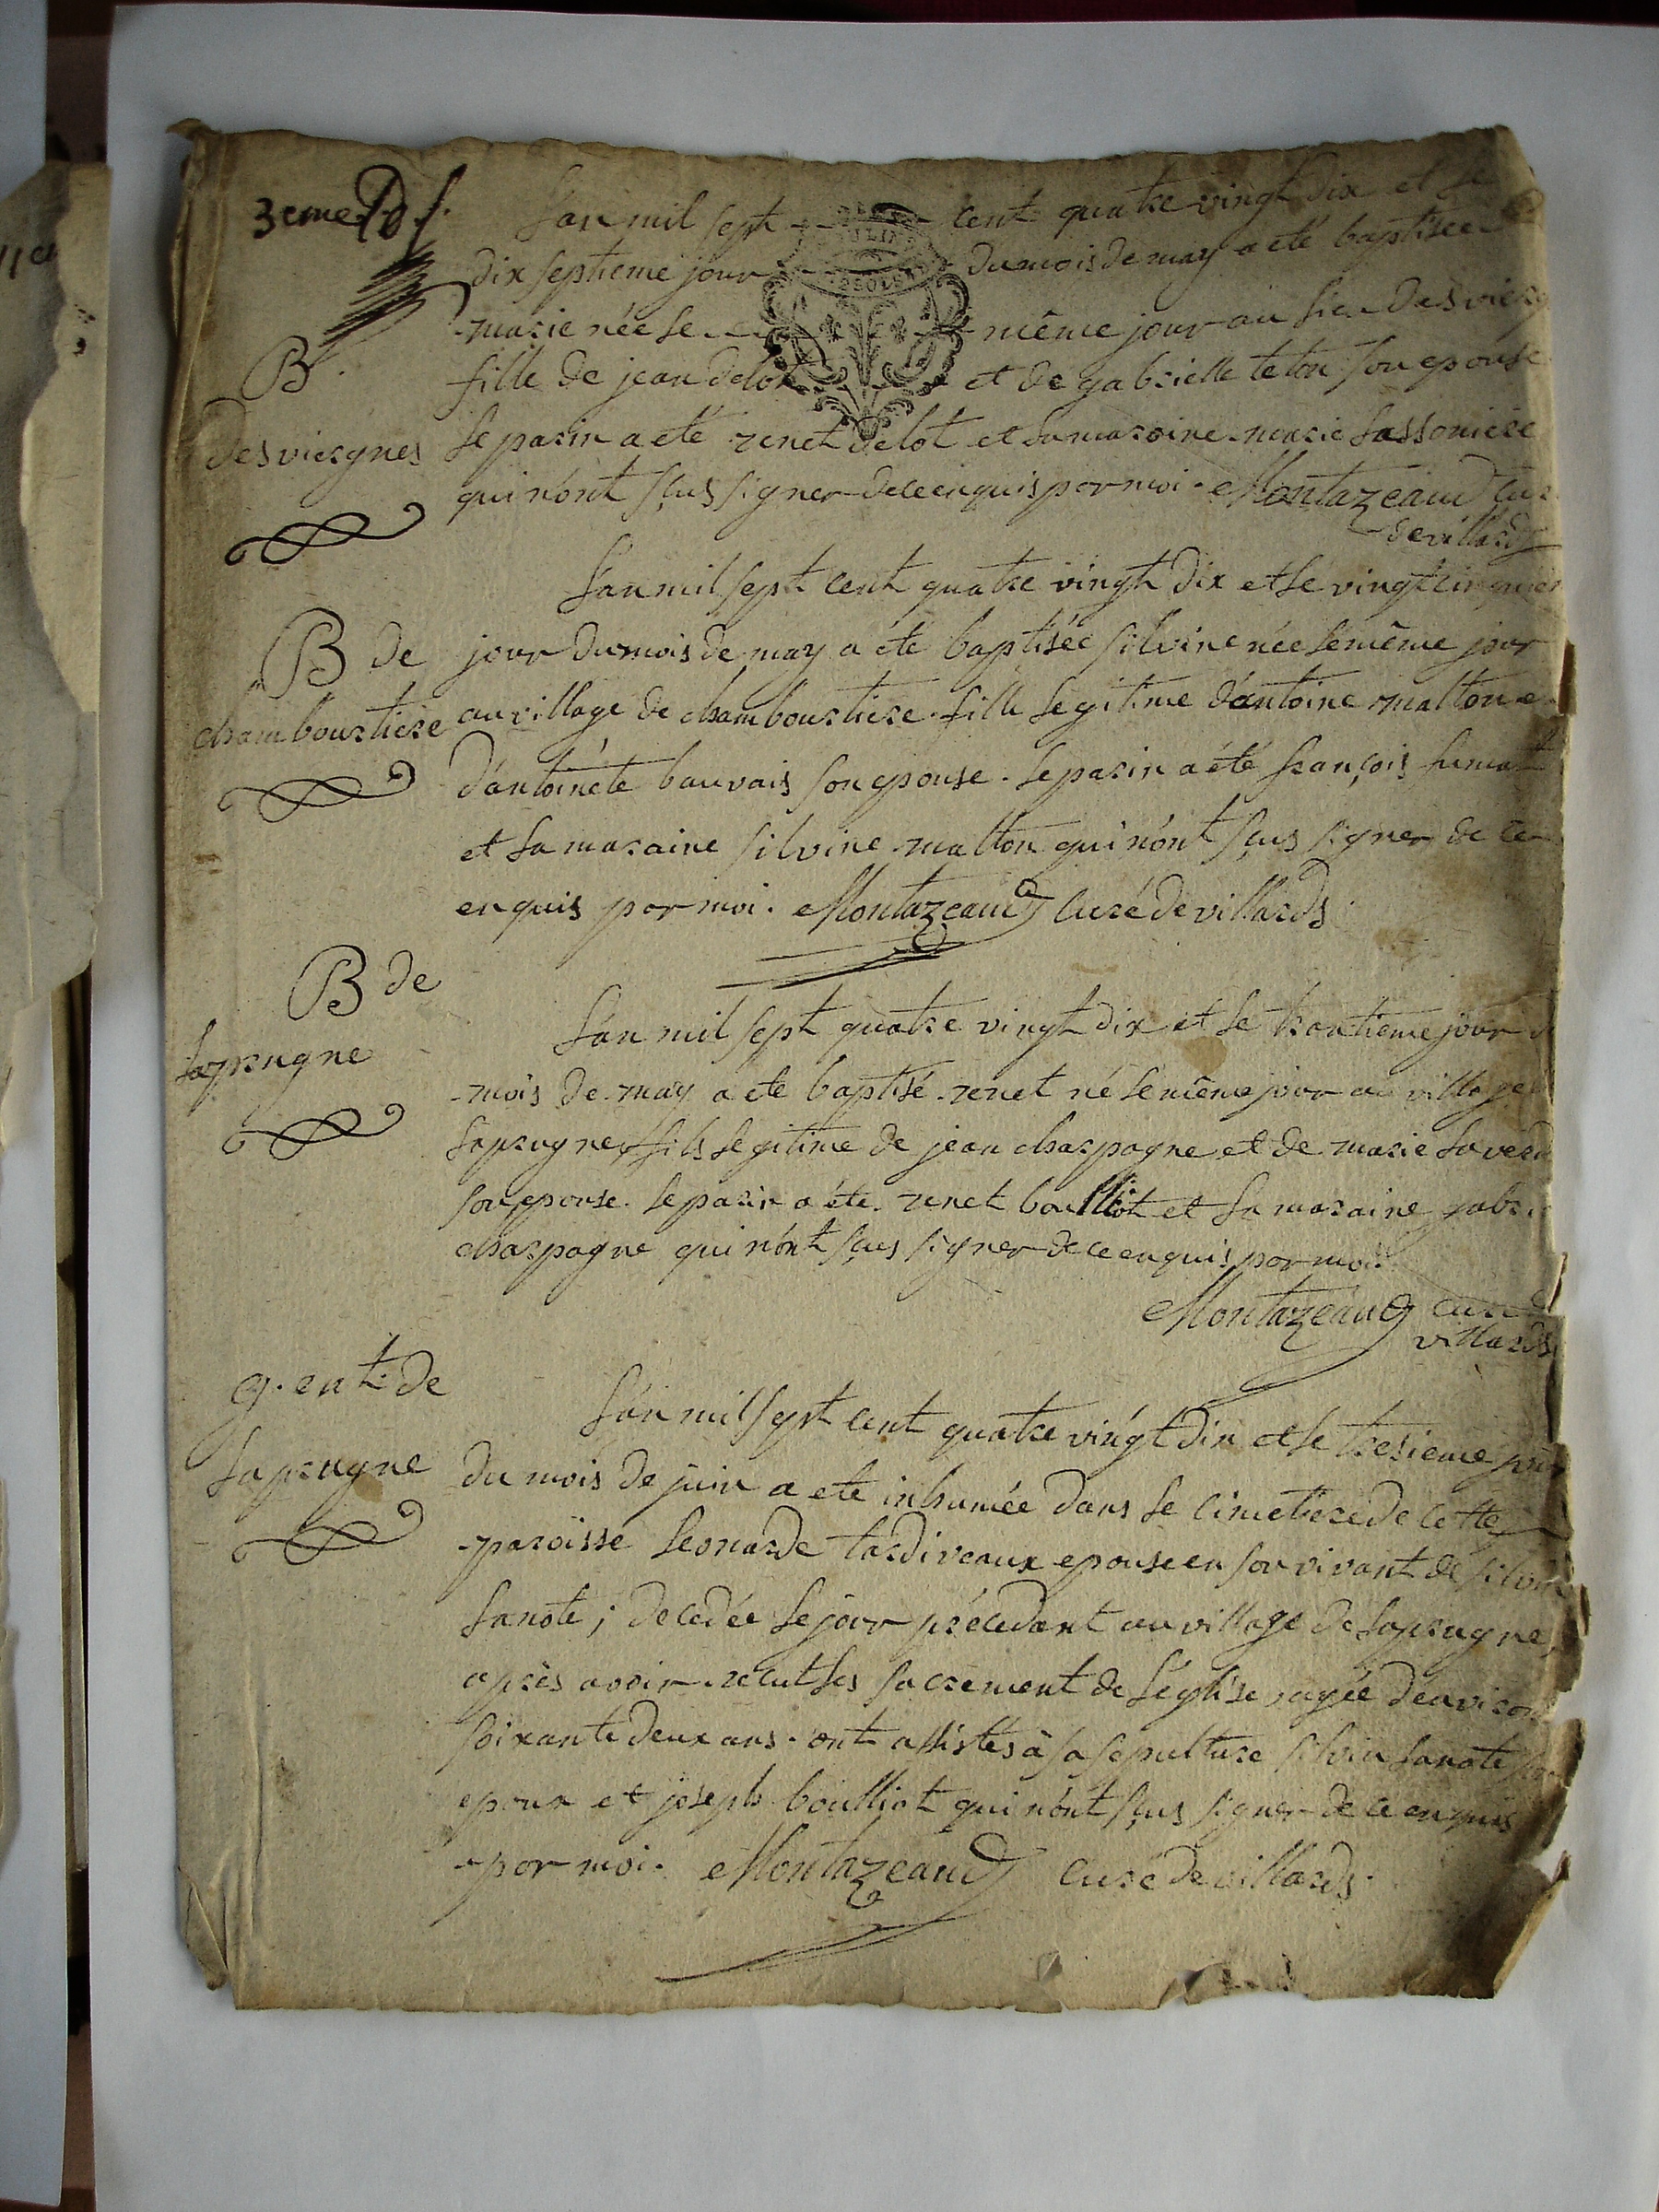 3eme f.
L'an mil sept cent quatre vingt dix et le
dix septieme jour du mois de may a eté baptisée
marie née le même jour au lieu desviergnes
B.
fille de jean delot et de gabrielle teton son epouse
desviergnes
le parin a eté renet delot et la maroine marie lassoniere
qui n'ont sçus signer de ce enquis por moi. Montazeaud curé
de villards
L'an mil sept cent quatre vingt dix et le vingt cinquiem
B de
jour du mois de may a eté baptisée silvine née le même jour
chambourtiere
au village de chambourtiere. fille legitime d'antoine malton e
d'antoinéte bauvais son epouse. le parin a été françois fumat
et la maraine silvine malton qui n'ont sçus signer de ce
enquis por moi. Montazeaud curé de villards
B de
laprugne
L'an mil sept quatre vingt dix et le trentieme jour d
mois de may a eté baptisé renet né le même jour au village
laprugne, fils legitime de jean charpagne et de marie laverd
son epouse. le parin a été renet boulliot et la maraine gabri
charpagne qui n'ont sçus signer de ce enquis por moi.
Montazeaud curé
villards
g. ent. de
laprugne
L'an mil sept cent quatre vingt dix et le tresieme jour
du mois de juin a eté inhumée dans le cimetiere de cette
paroisse leonarde tardiveaux epouse en son vivant de silvin
lanote; decedée le jour précedent au village de laprugne,
après avoir recut les sacrement de l'église, agée d'environ
soixante deux ans. ont assistés à sa sepulture silvin lanote son
epoux et joseph boulliot qui n'ont sçus signer de ce enquis
por moi. Montazeaud curé de villards.